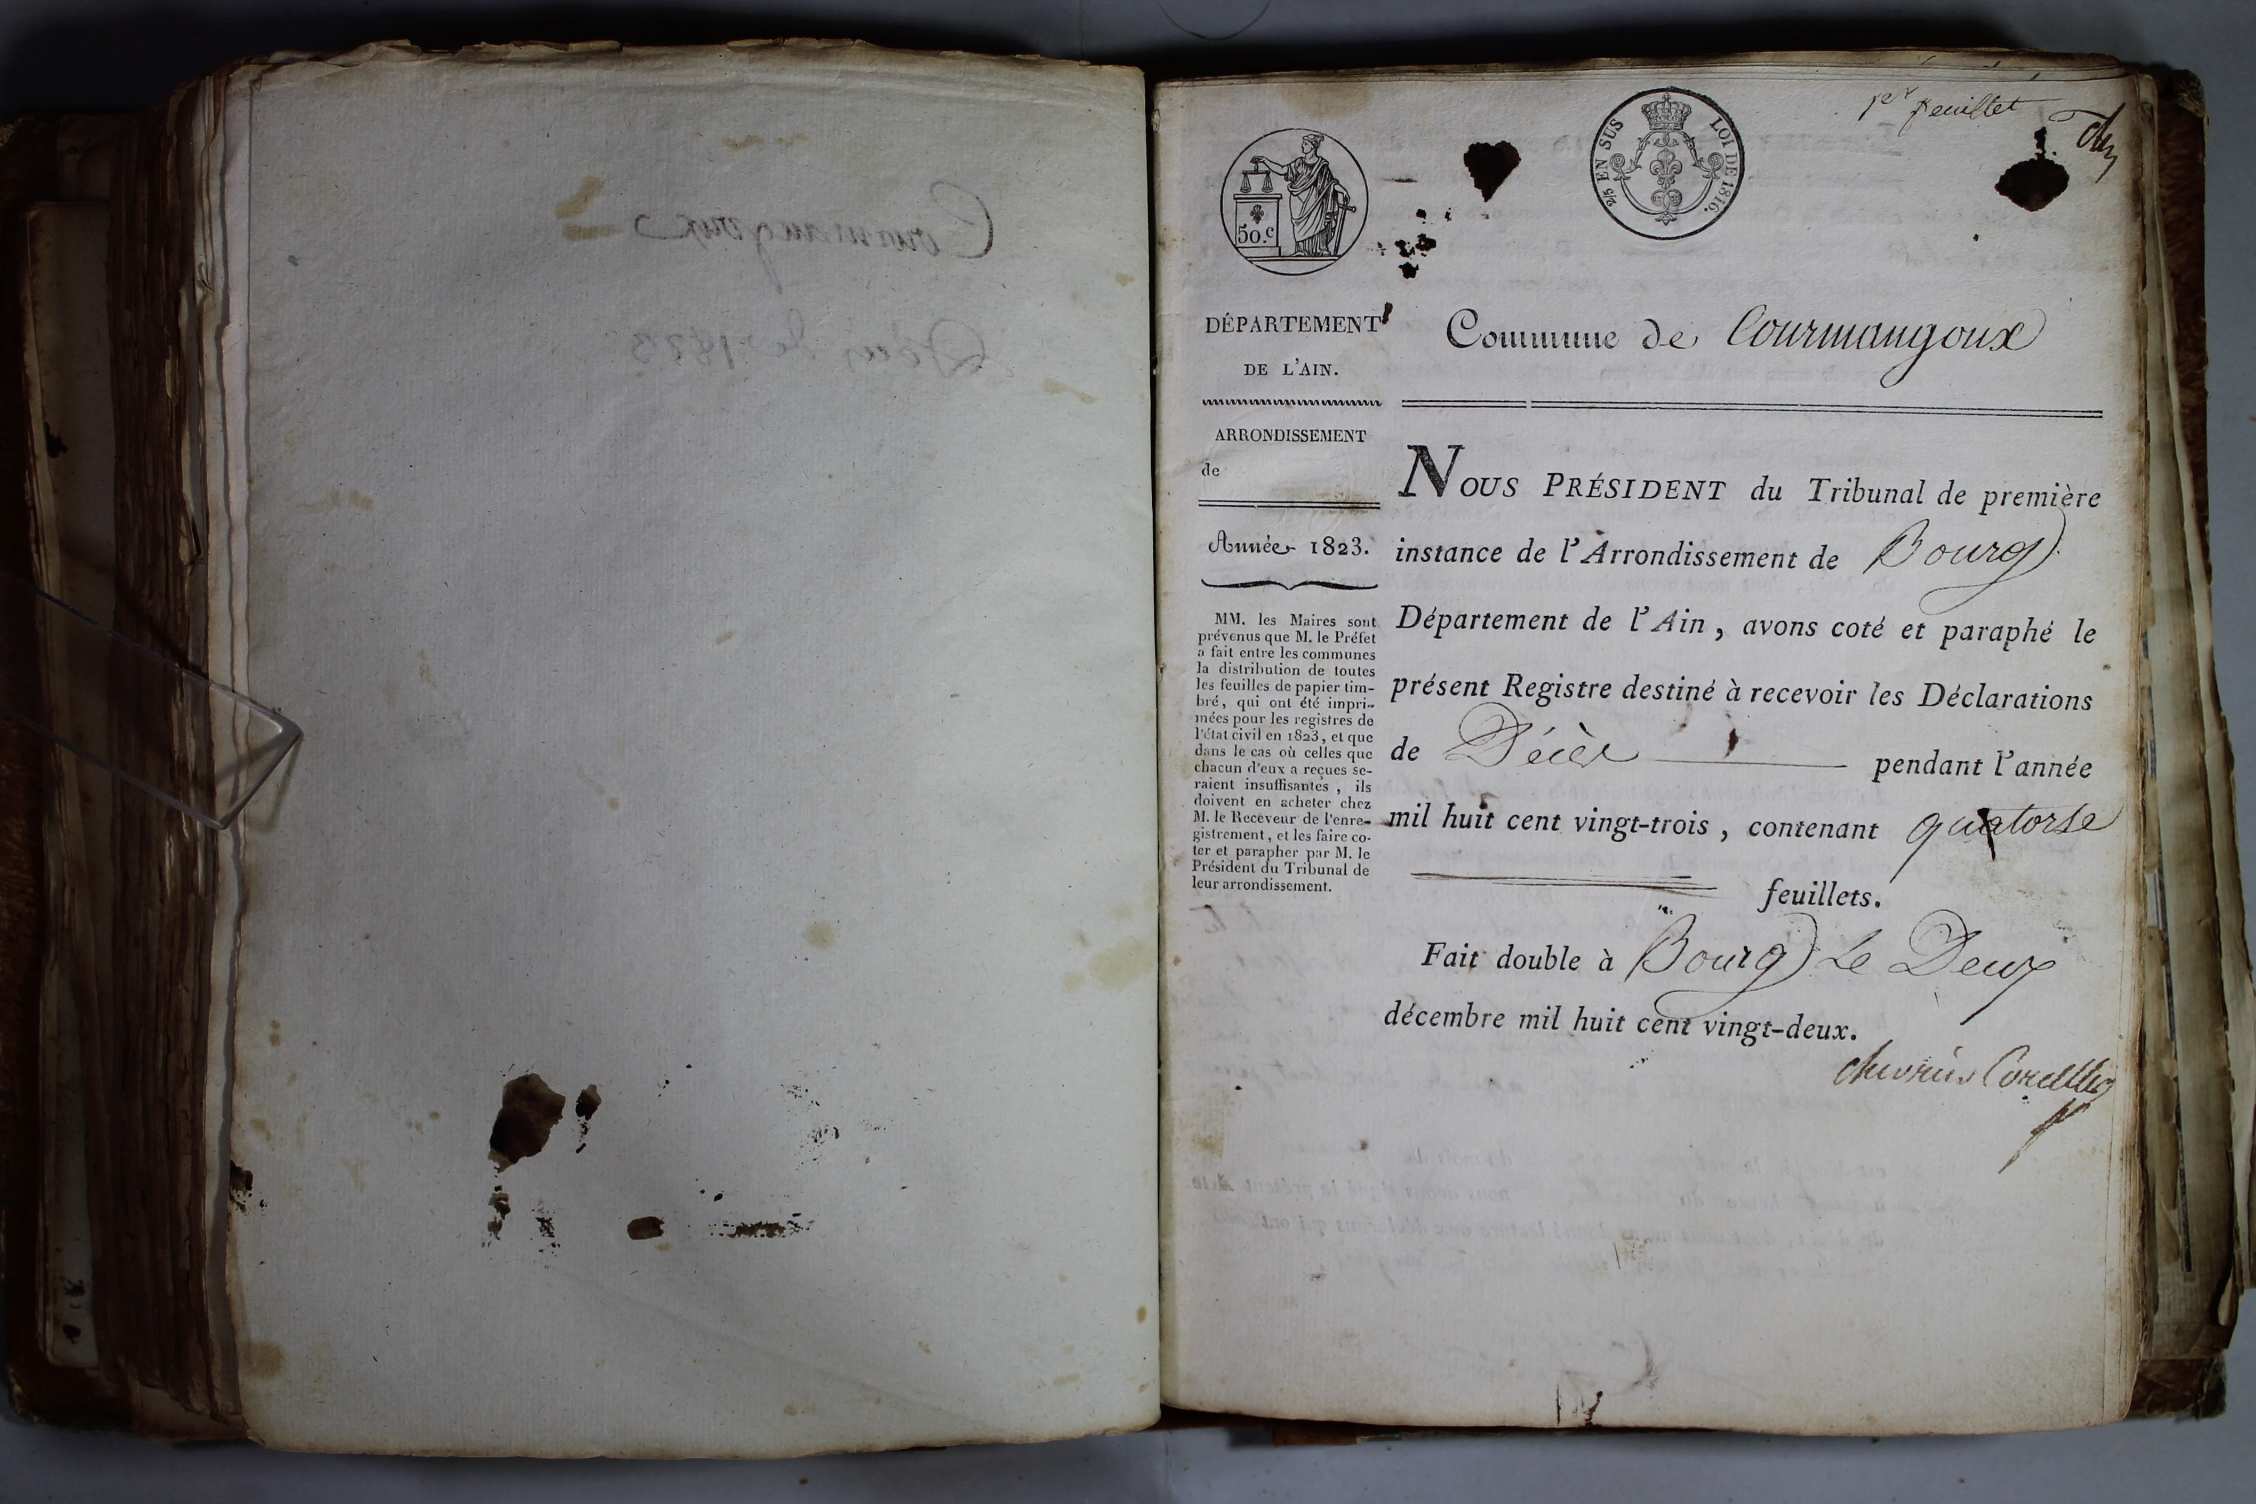 Courmangoux
Décès de 1823
1er feuillet
2/5 EN SUS
LOI DE 1816.
50.c
DÉPARTEMENT
DE L'AIN.
ARRONDISSEMENT
de
Année 1823.
MM. les Maires sont
prévenus que M. le Préfet
a fait entre les communes
la distribution de toutes
les feuilles de papier tim-
bré, qui ont été impri-
mées pour les registres de
l'état civil en 1823, et que
dans le cas où celles que
chacun d'eux a reçues se-
raient insuffisantes, ils
doivent en acheter chez
M. le Receveur de l'enre-
gistrement, et les faire co-
ter et parapher par M. le
Président du Tribunal de
leur arrondissement.
Commune de Courmangoux
NOUS PRÉSIDENT du Tribunal de première
instance de l'Arrondissement de Bourg
Département de l'Ain, avons coté et paraphé le
présent Registre destiné à recevoir les Déclarations
de Décès pendant l'année
mil huit cent vingt-trois, contenant quatorse
feuillets.
Fait double à Bourg Le Deux
décembre mil huit cent vingt-deux.